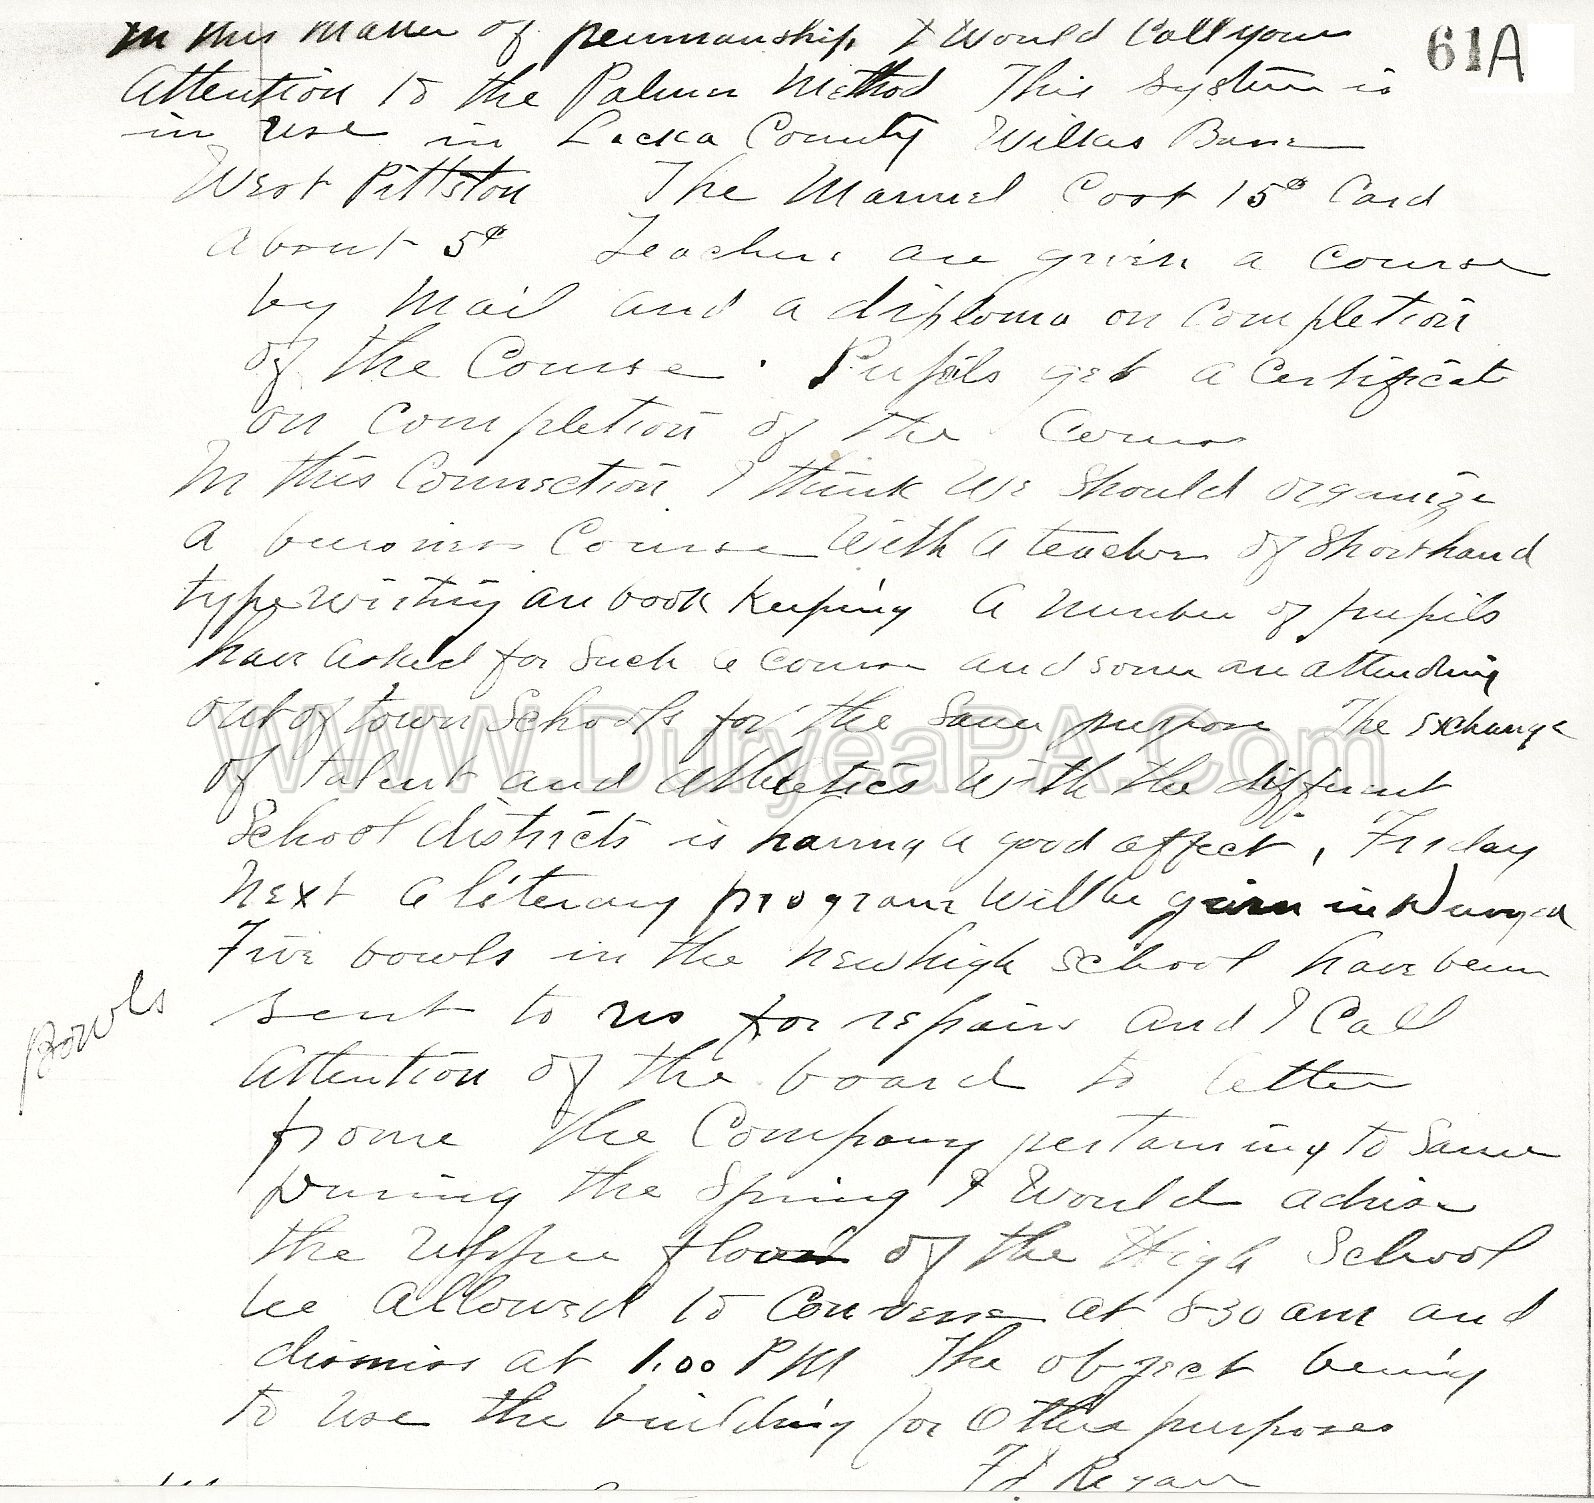 61A
In this Matter of penmanship I Would Call your
Attention to the Palmer Method This System is
in use in Lacka County Wilkes Barre
West Pittston The Manuel Cost 15¢ Card
About 5¢ Teachers are given a course
by Mail and a diploma on completion
of the Course. Pupils get a Certificate
on completion of the Course
In this Connection I think We Should organize
A business Course With a teacher of Shorthand
type writing an book keeping A number of pupils
have asked for Such a course and some are attending
out of town Schools for the Same purpose The exchange
of talent and athletics With the different
School districts is having a good affect, Friday
Next a literary program Will be given in Duryea
Five bowls in the new high school have been
Bowls
sent to us for repairs and I Call
Attention of the board to letter
frome the Company pertaining to Same
During the Spring I Would advise
the upper floor of the High School
be allowed to Convene at 8 30 am and
dismiss at 1.00 PM The object being
to use the building for Other purposes
F J. Regan
WWW.DuryeaPA.Com